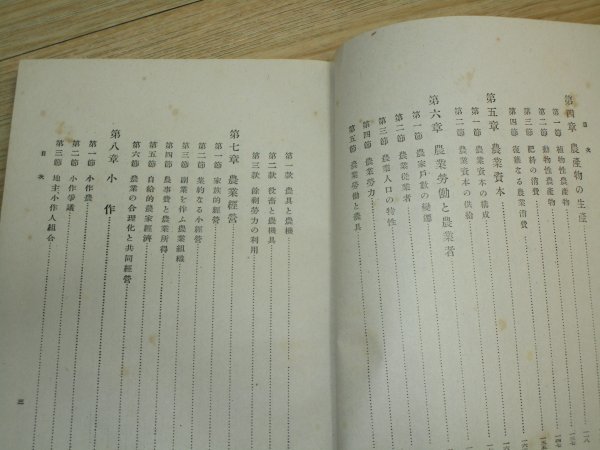 目次
第四章 農產物の生產
第一節 植物性農產物
第二節 動物性農產物
第三節 肥料の消費
第四節 複雜なる農業消費
第五章 農業資本
第一節 農業資本の構成
第二節 農業資本の供給
第六章 農業勞働と農業者
第一節 農家戶數の變遷
第二節 農業從業者
第三節 農業人口の特性
第四節 農業勞力
第五節 農業勞働と農具
第一款 農具と農機
第二款 役畜と農機具
第三款 餘剩勞力の利用
第七章 農業經營
第一節 家族的經營
第二節 集約なる小經營
第三節 副業を伴ふ農業組織
第四節 農事費と農業所得
第五節 自給的農家經濟
第六節 農業の合理化と共同經營
第八章 小作
第一節 小作農
第二節 小作爭議
第三節 地主小作人組合
目次
三